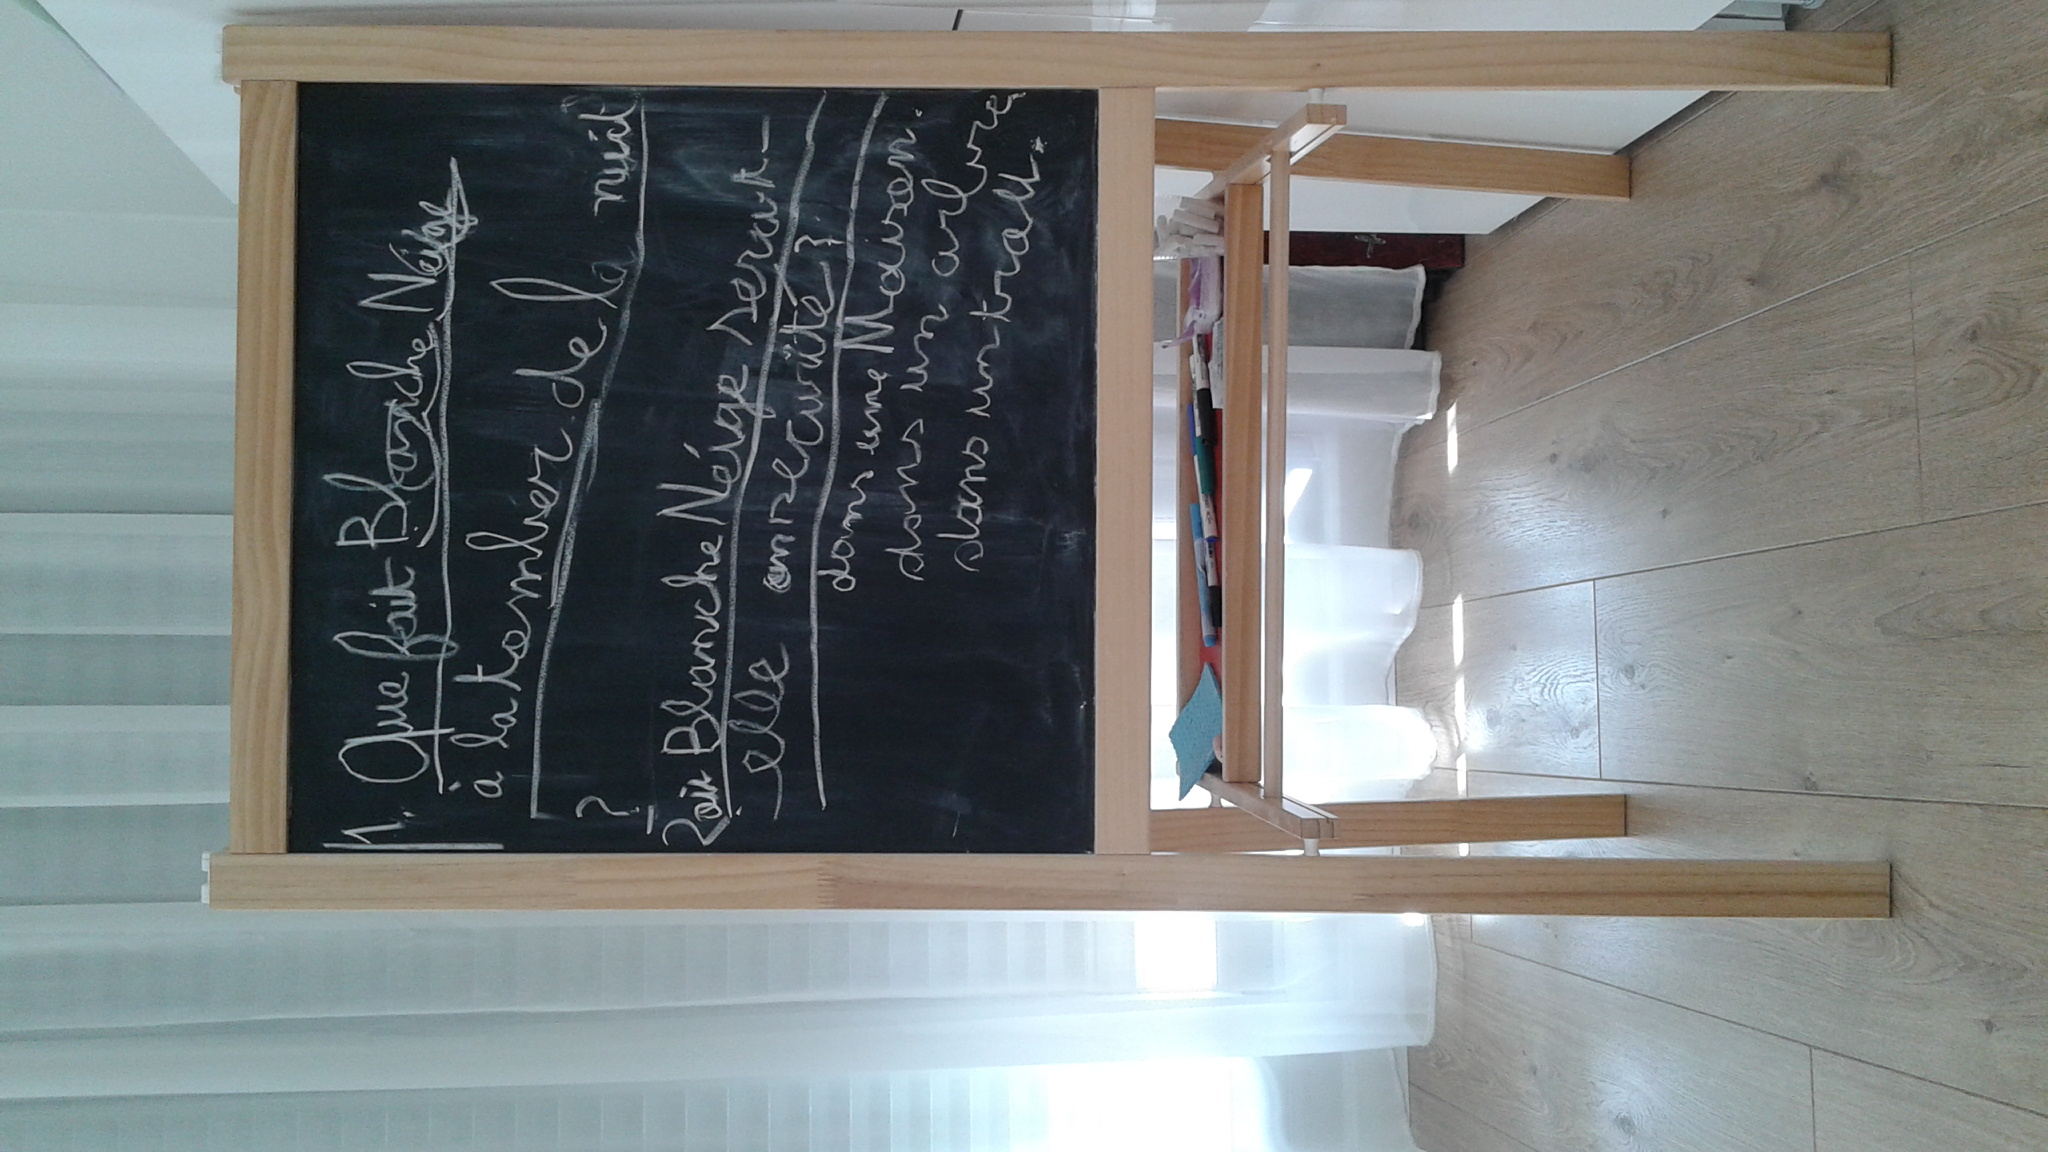 1. Que fait Blanche Néige
à la tomber de la nuit
?
2 où Blanche Néige sera-t-
elle en sécurité ?
dans une Maison.
dans un arbre
dans un trou.